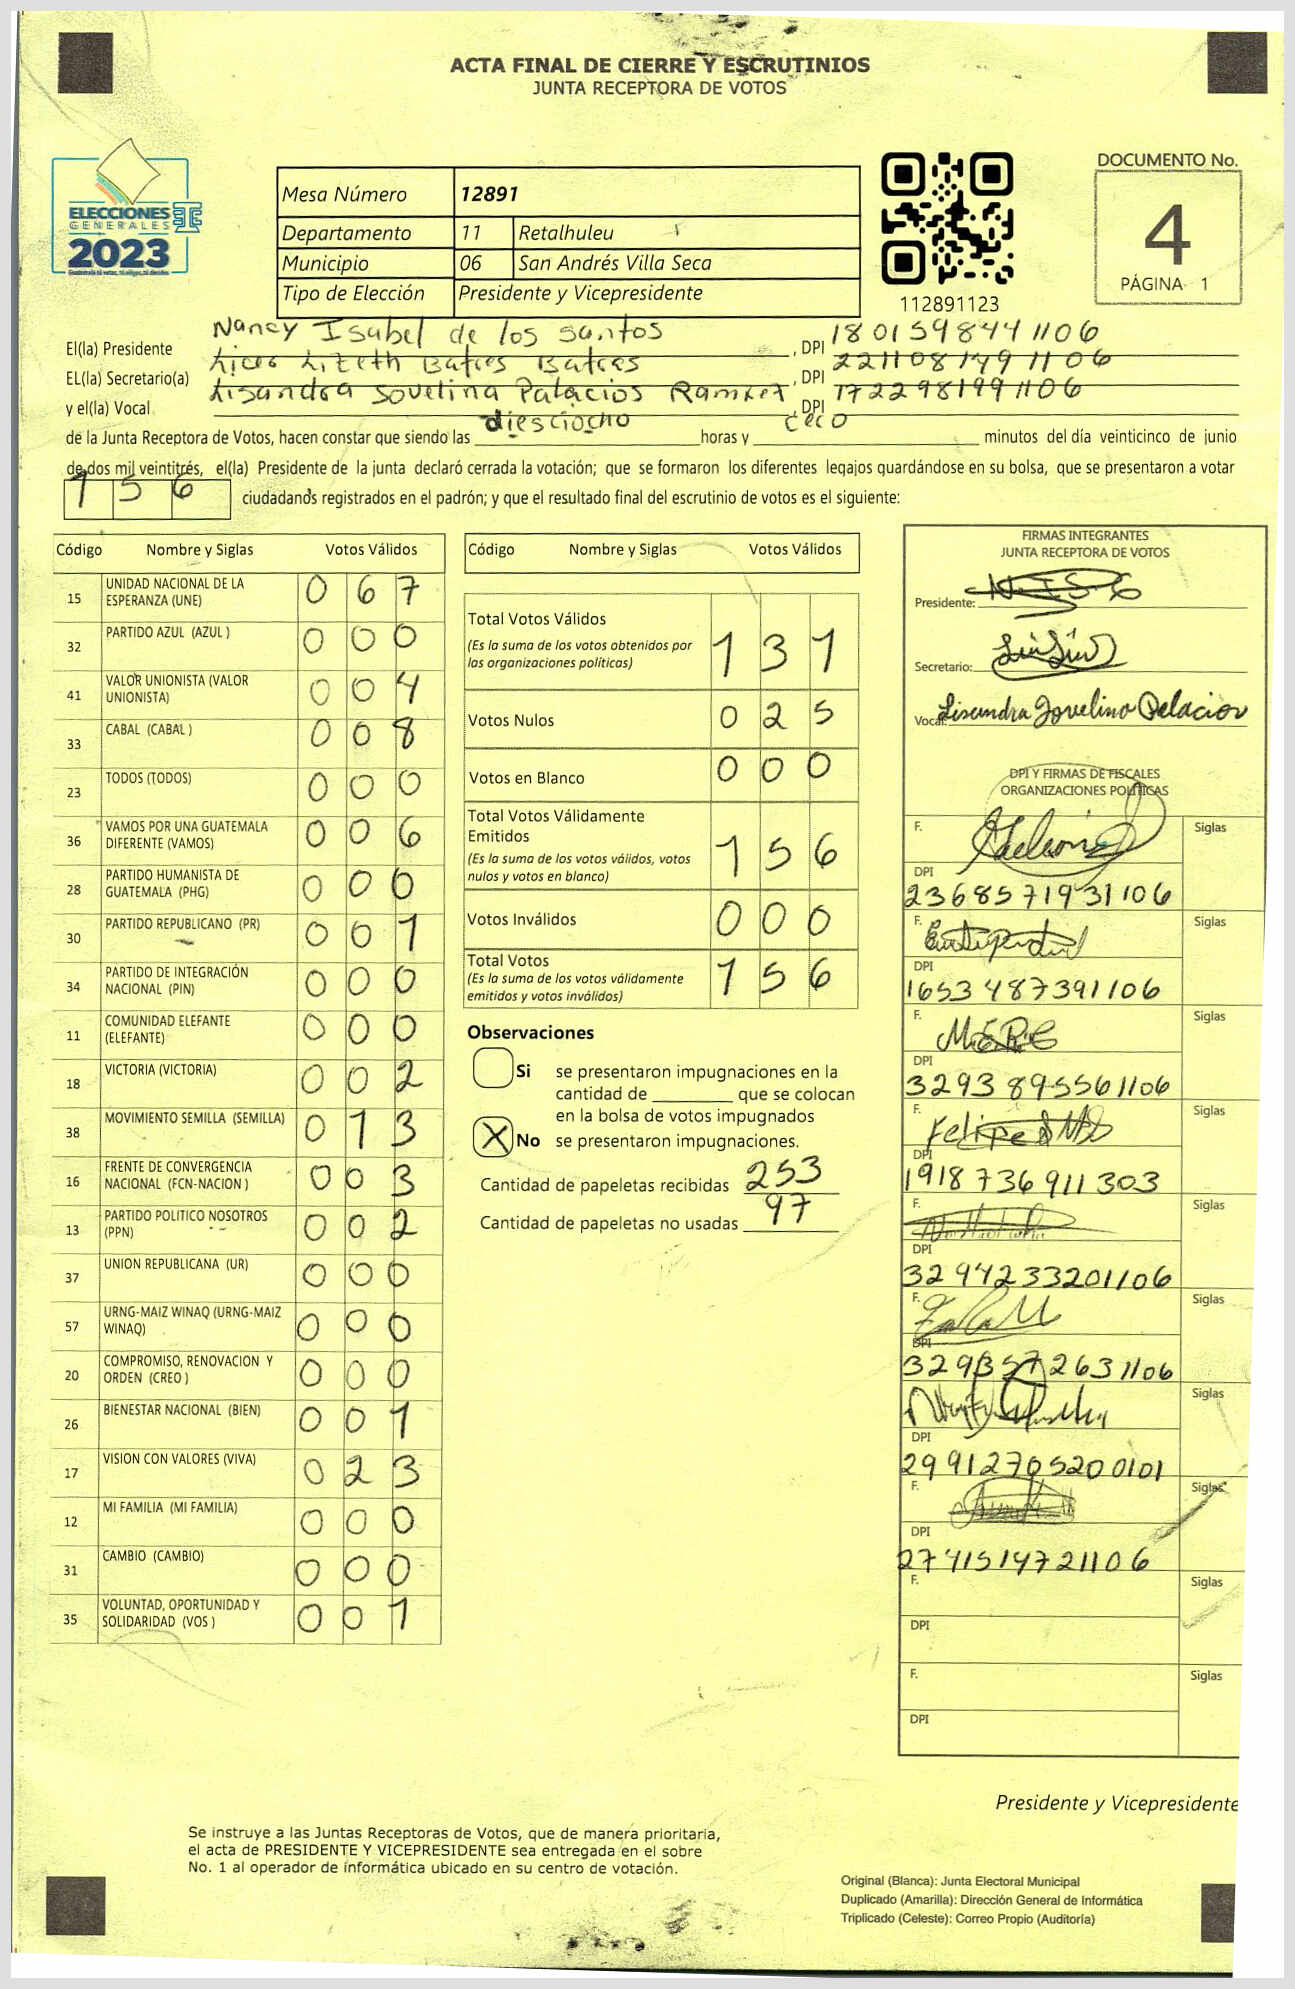 ACTA FINAL DE CIERRE Y ESCRUTINIOS
JUNTA RECEPTORA DE VOTOS
ELECCIONES
GENERALES
2023
Mesa Número 12891
Departamento 11 Retalhuleu
Municipio 06 San Andrés Villa Seca
Tipo de Elección Presidente y Vicepresidente
112891123
DOCUMENTO No.
4
PÁGINA 1
El(la) Presidente Nancy Isabel de los santos, DPI 1801598441106
EL(la) Secretario(a) Lizeth Batres Batres, DPI 2211081491106
y el(la) Vocal Lisandra Jovelina Palacios Ramirez, DPI 1722981991106
de la Junta Receptora de Votos, hacen constar que siendo las diesciocho horas y cero minutos del día veinticinco de junio
de dos mil veintitrés, el(la) Presidente de la junta declaró cerrada la votación; que se formaron los diferentes legajos guardándose en su bolsa, que se presentaron a votar
156 ciudadanos registrados en el padrón; y que el resultado final del escrutinio de votos es el siguiente:
Código Nombre y Siglas Votos Válidos
15 UNIDAD NACIONAL DE LA ESPERANZA (UNE) 067
32 PARTIDO AZUL (AZUL ) 000
41 VALOR UNIONISTA (VALOR UNIONISTA) 004
33 CABAL (CABAL ) 008
23 TODOS (TODOS) 000
36 VAMOS POR UNA GUATEMALA DIFERENTE (VAMOS) 006
28 PARTIDO HUMANISTA DE GUATEMALA (PHG) 000
30 PARTIDO REPUBLICANO (PR) 001
34 PARTIDO DE INTEGRACIÓN NACIONAL (PIN) 000
11 COMUNIDAD ELEFANTE (ELEFANTE) 000
18 VICTORIA (VICTORIA) 002
38 MOVIMIENTO SEMILLA (SEMILLA) 013
16 FRENTE DE CONVERGENCIA NACIONAL (FCN-NACION ) 003
13 PARTIDO POLITICO NOSOTROS (PPN) 002
37 UNION REPUBLICANA (UR) 000
57 URNG-MAIZ WINAQ (URNG-MAIZ WINAQ) 000
20 COMPROMISO, RENOVACION Y ORDEN (CREO ) 000
26 BIENESTAR NACIONAL (BIEN) 001
17 VISION CON VALORES (VIVA) 023
12 MI FAMILIA (MI FAMILIA) 000
31 CAMBIO (CAMBIO) 000
35 VOLUNTAD, OPORTUNIDAD Y SOLIDARIDAD (VOS ) 001
Código Nombre y Siglas Votos Válidos
Total Votos Válidos 131
(Es la suma de los votos obtenidos por las organizaciones políticas)
Votos Nulos 025
Votos en Blanco 000
Total Votos Válidamente Emitidos 156
(Es la suma de los votos válidos, votos nulos y votos en blanco)
Votos Inválidos 000
Total Votos 156
(Es la suma de los votos válidamente emitidos y votos inválidos)
Observaciones
Si se presentaron impugnaciones en la
cantidad de ________ que se colocan
en la bolsa de votos impugnados
X No se presentaron impugnaciones.
Cantidad de papeletas recibidas 253
Cantidad de papeletas no usadas 97
FIRMAS INTEGRANTES
JUNTA RECEPTORA DE VOTOS
Presidente:
Secretario:
Vocal: Lisandra Jovelina Palacios
DPI Y FIRMAS DE FISCALES
ORGANIZACIONES POLÍTICAS
F. Siglas
DPI 2368571931106
F. Siglas
DPI 1653487391106
F. Siglas
DPI 3293895561106
F. Felipe Siglas
DPI 1918736911303
F. Siglas
DPI 3294233201106
F. Siglas
DPI 3293572631106
F. Siglas
DPI 29912705200101
F. Siglas
DPI 2741514721106
F. Siglas
DPI
F. Siglas
DPI
Presidente y Vicepresidente
Se instruye a las Juntas Receptoras de Votos, que de manera prioritaria,
el acta de PRESIDENTE Y VICEPRESIDENTE sea entregada en el sobre
No. 1 al operador de informática ubicado en su centro de votación.
Original (Blanca): Junta Electoral Municipal
Duplicado (Amarilla): Dirección General de Informática
Triplicado (Celeste): Correo Propio (Auditoría)